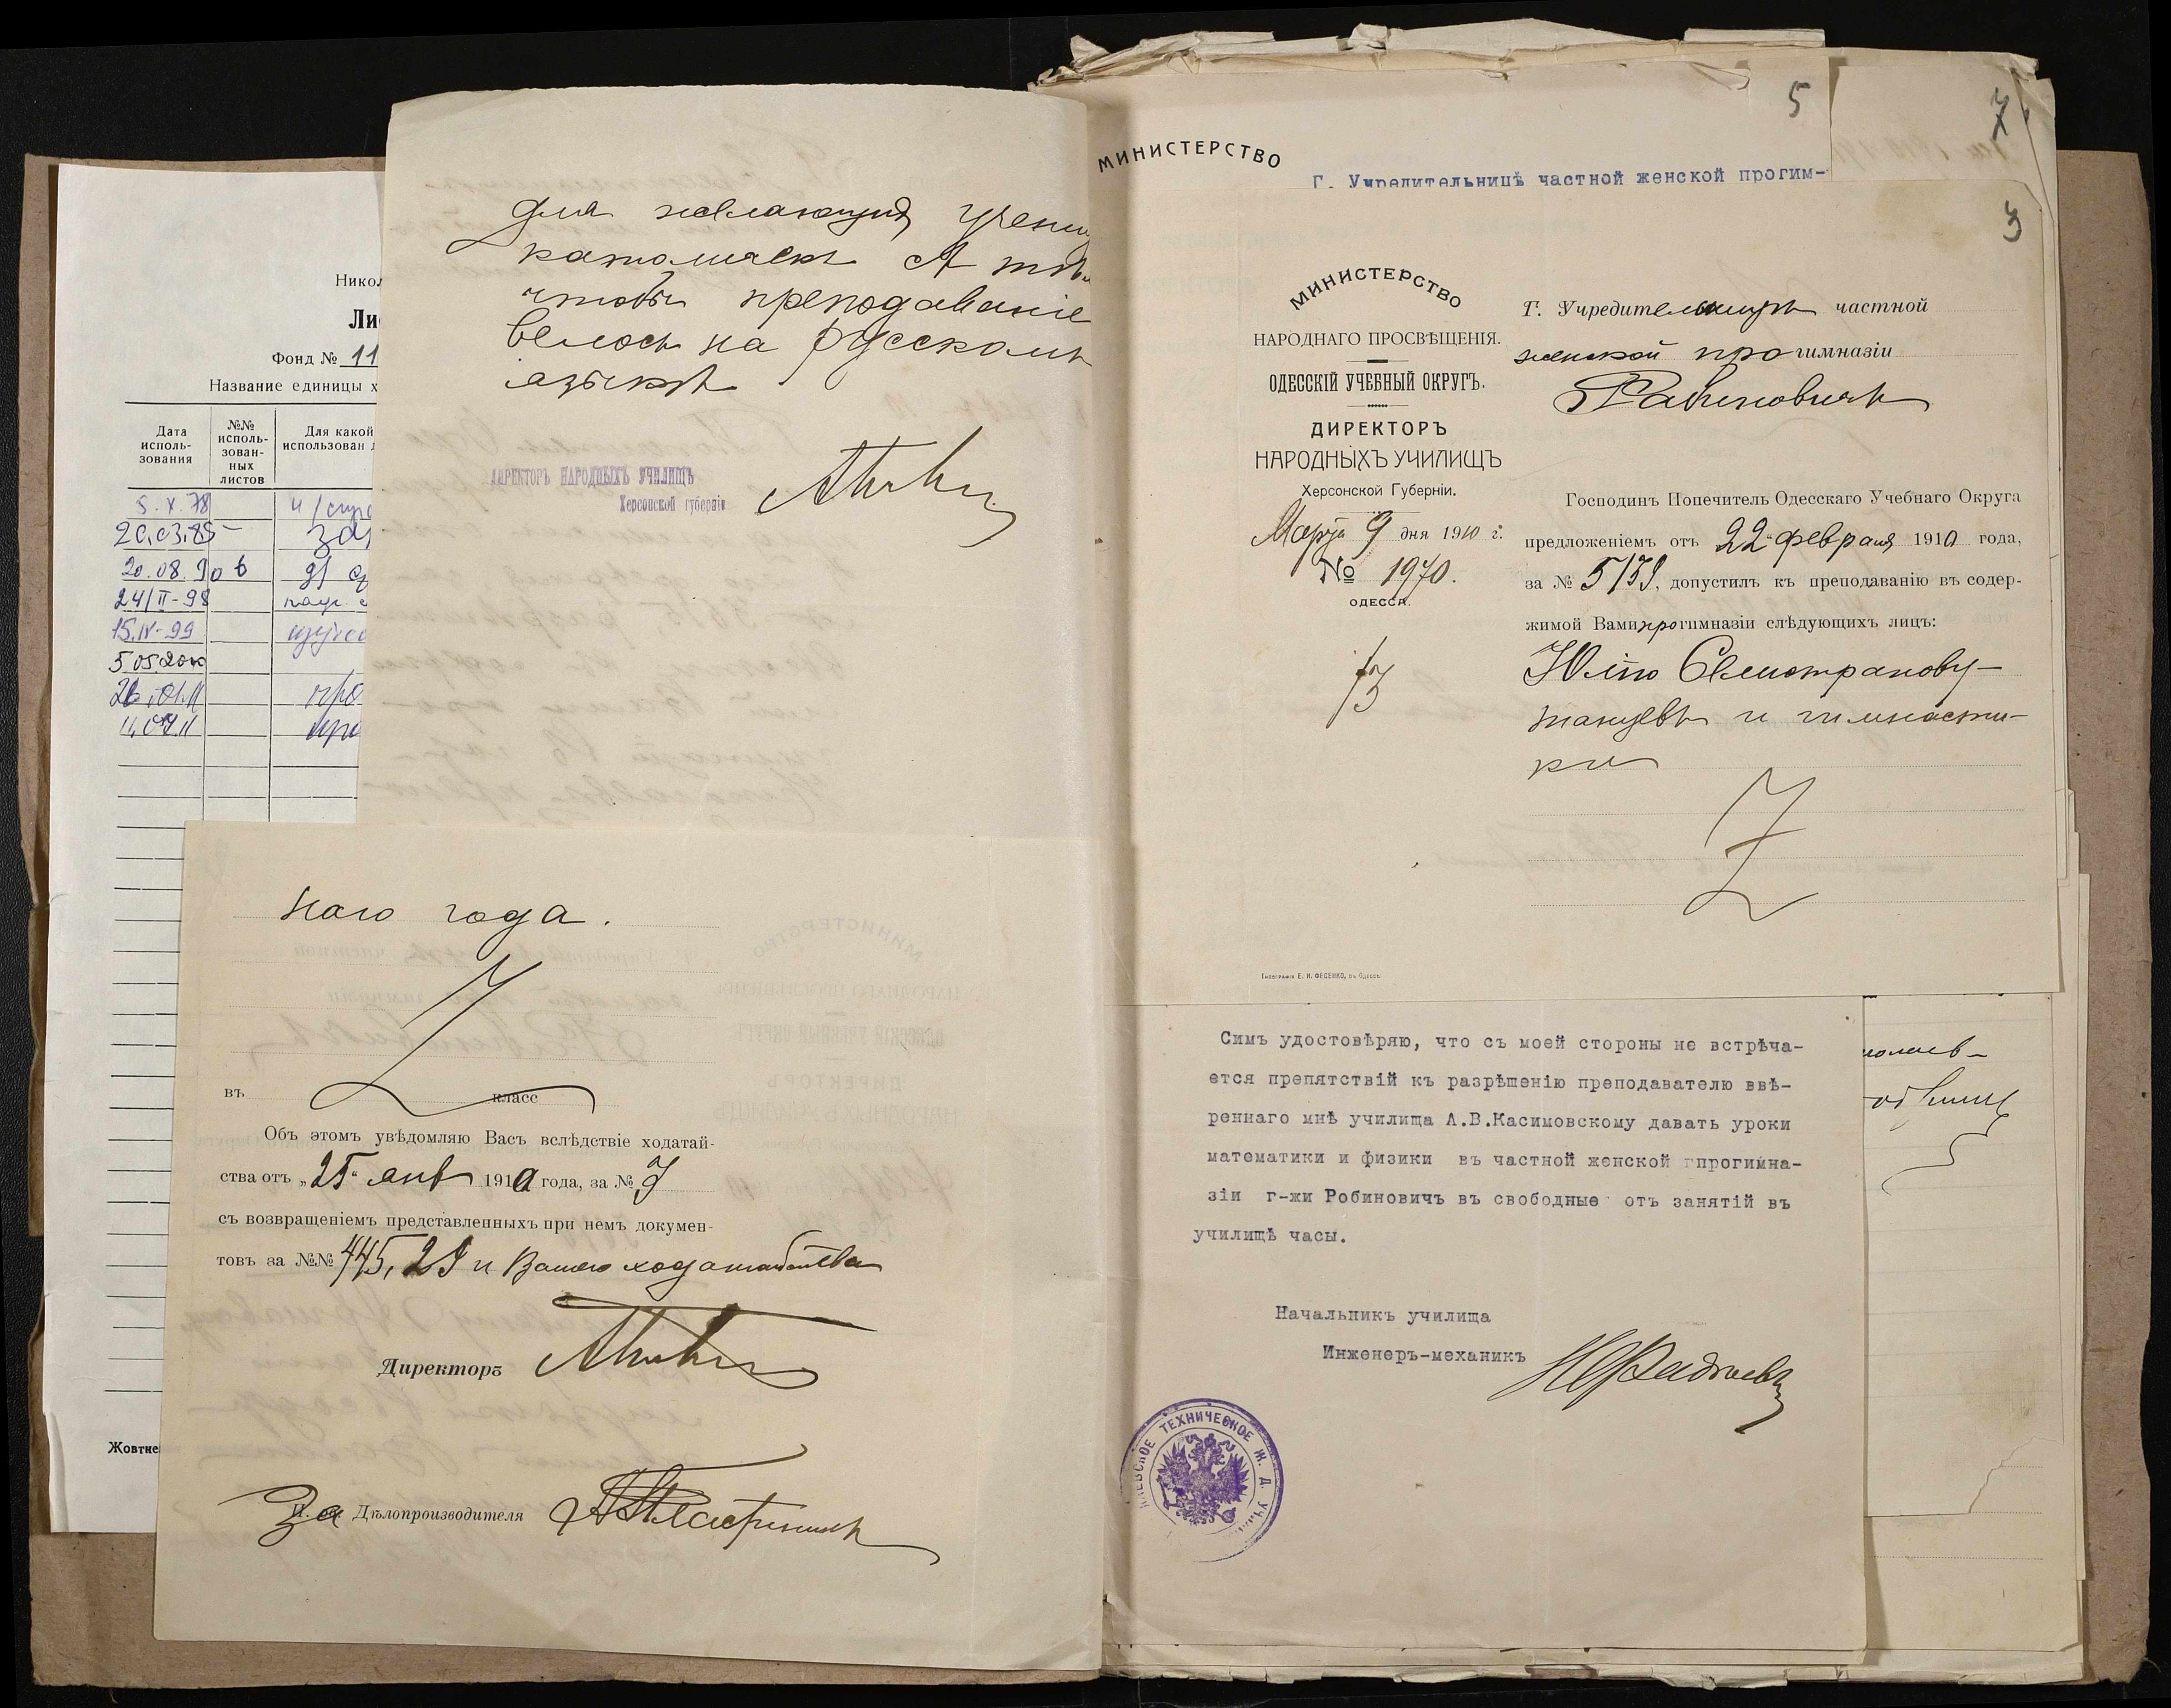 Никол
Ли
Фонд № 11
Название единицы х
Дата
исполь-
зования
№№
исполь-
зован-
ных
листов
Для какой
использован
5.X.78
20.03.85
20.08.90 6
24/II-98
15.IV-99
5.05.200
26.01.11
11.04.11
Жовтне
для желающихъ учени
католичекъ
чтобы преподаваніе
велось на русскомъ
языкѣ
ДИРЕКТОРЪ НАРОДНЫХЪ УЧИЛИЩЪ
Херсонской губерніи
наго года.
въ класс
Объ этомъ увѣдомляю Васъ вслѣдствіе ходатай-
ства отъ „25“ янв 1910 года, за №
съ возвращеніемъ представленныхъ при немъ докумен-
товъ за №№ 445, 29 и Вашего ходатайства
Директоръ
За Дѣлопроизводителя
5
7
МИНИСТЕРСТВО
Г. Учредительницѣ частной женской прогим-
3
МИНИСТЕРСТВО
НАРОДНАГО ПРОСВѢЩЕНІЯ.
ОДЕССКІЙ УЧЕБНЫЙ ОКРУГЪ.
ДИРЕКТОРЪ
НАРОДНЫХЪ УЧИЛИЩЪ
Херсонской Губерніи.
Марта 9 дня 1910 г.
№ 1970.
ОДЕССА.
13
Г. Учредительницѣ частной
женской прогимназіи
Рабиновичъ
Господинъ Попечитель Одесскаго Учебнаго Округа
предложеніемъ отъ 22 февраля 1910 года,
за № 5139, допустилъ къ преподаванію въ содер-
жимой Вами прогимназіи слѣдующихъ лицъ:
Юлію Селистранову-
танцевъ и гимнасти-
ки
Типографія Е. И. ФЕСЕНКО, въ Одессѣ.
Симъ удостовѣряю, что съ моей стороны не встрѣча-
ется препятствій къ разрѣшенію преподавателю ввѣ-
реннаго мнѣ училища А.В.Касимовскому давать уроки
математики и физики въ частной женской прогимна-
зіи г-жи Робиновичъ въ свободные отъ занятій въ
училищѣ часы.
Начальникъ училища
Инженеръ-механикъ
ЛАЕВСКОЕ ТЕХНИЧЕСКОЕ Ж. Д. УЧИ